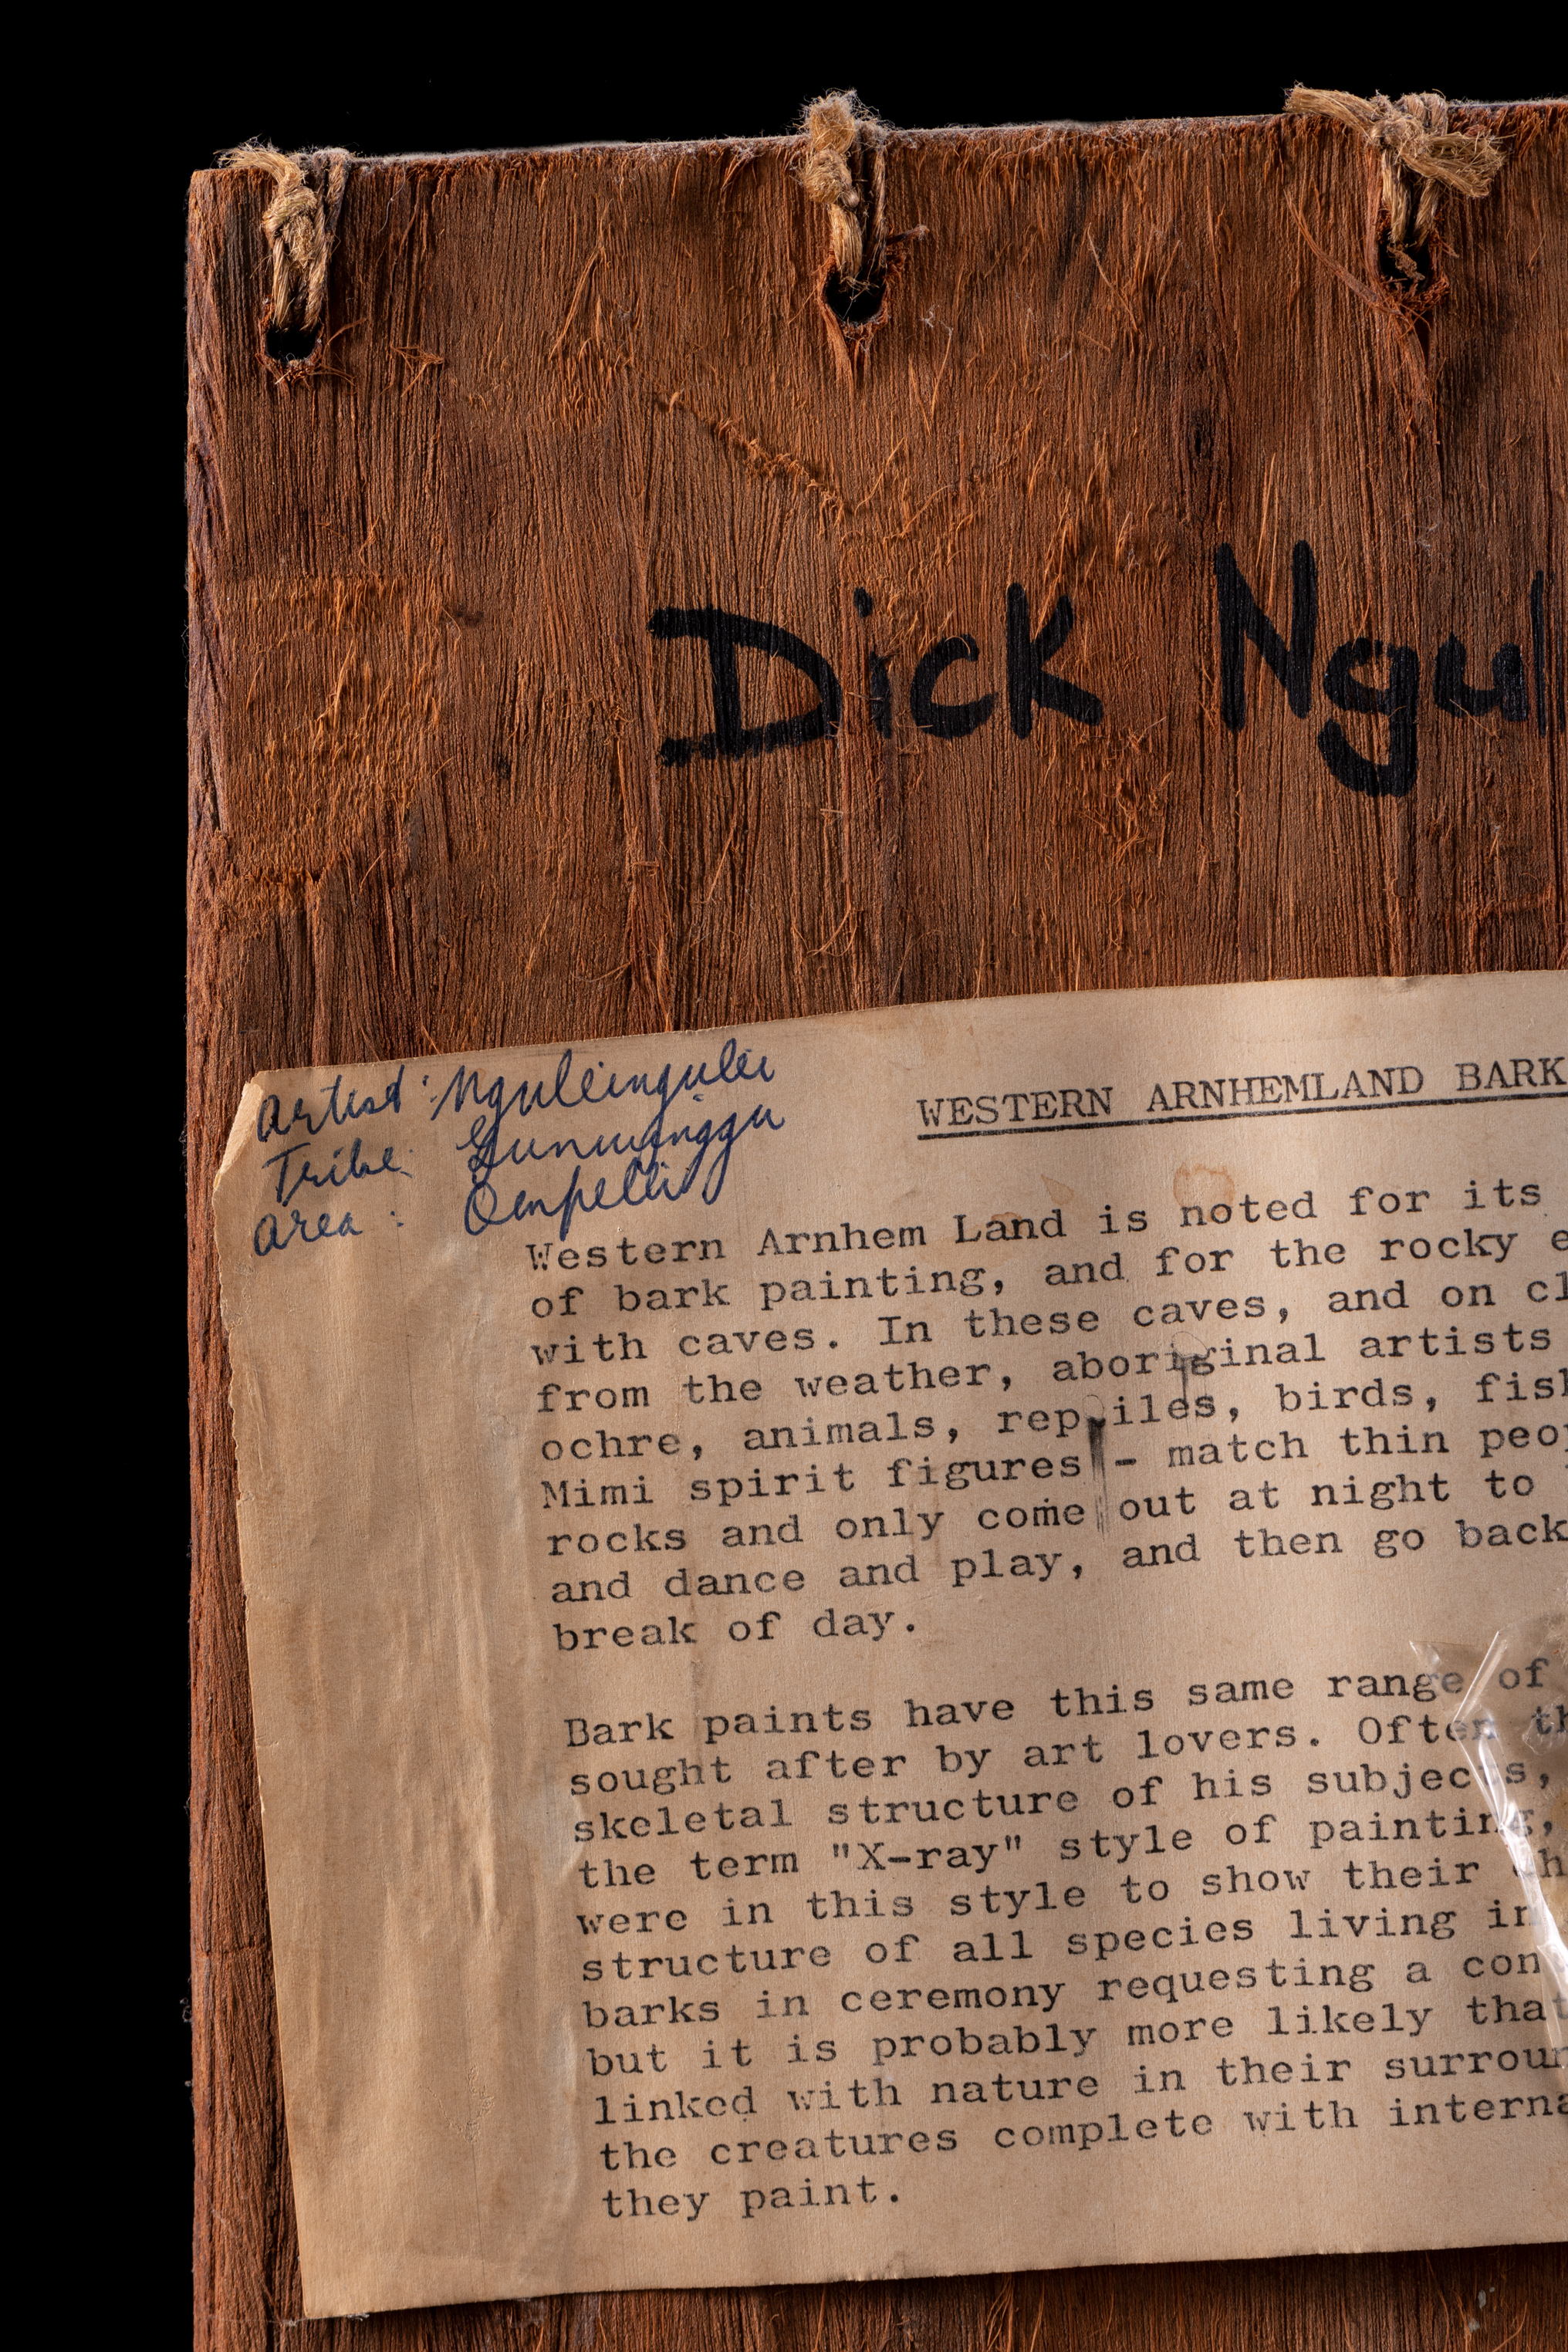 Dick Ngul
Artist: Nguleingulei
Tribe: Gunwinggu
Area: Oenpelli
WESTERN ARNHEMLAND BARK
Western Arnhem Land is noted for its
of bark painting, and for the rocky e
with caves. In these caves, and on cl
from the weather, aboriginal artists
ochre, animals, reptiles, birds, fish
Mimi spirit figures - match thin peop
rocks and only come out at night to
and dance and play, and then go back
break of day.
Bark paints have this same range of
sought after by art lovers. Often th
skeletal structure of his subjects,
the term "X-ray" style of painting,
were in this style to show their ch
structure of all species living in
barks in ceremony requesting a con
but it is probably more likely that
linked with nature in their surroun
the creatures complete with interna
they paint.